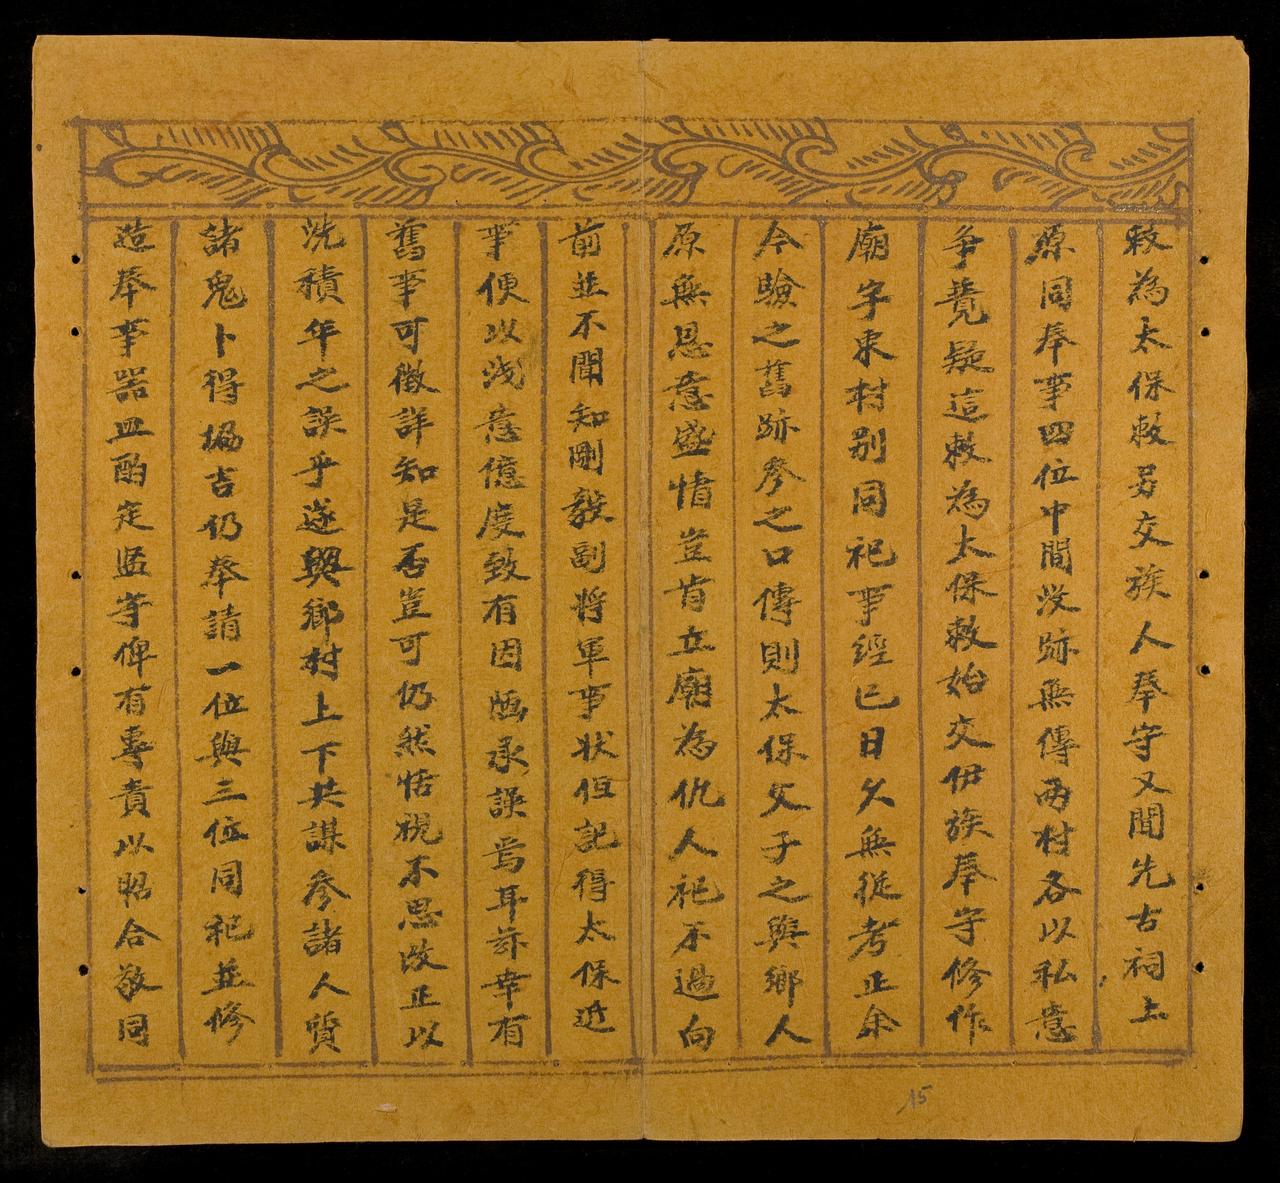 敕為太保敕另交族人奉守又聞先古祠上
原同奉事四位中間没跡無傳两村各以私意
争競疑這敕為太保敕始交伊族奉守修作
廟宇東村别同祀事經已日久無從考正余
今驗之舊跡參之口傳則太保父子之與鄉人
原無恩意盛情豈肯立廟為仇人祀不過向
前並不聞知剛毅副将軍事状但記得太保近
事便以浅意億度致有因訛承誤焉耳茲幸有
舊事可徵詳知是否豈可仍然恬視不思改正以
洗積年之誤乎遂與鄉村上下共謀參諸人質
諸鬼卜得協吉仍奉請一位與三位同祀並修
造奉事器皿酌定監守俾有專責以昭合敬同
15